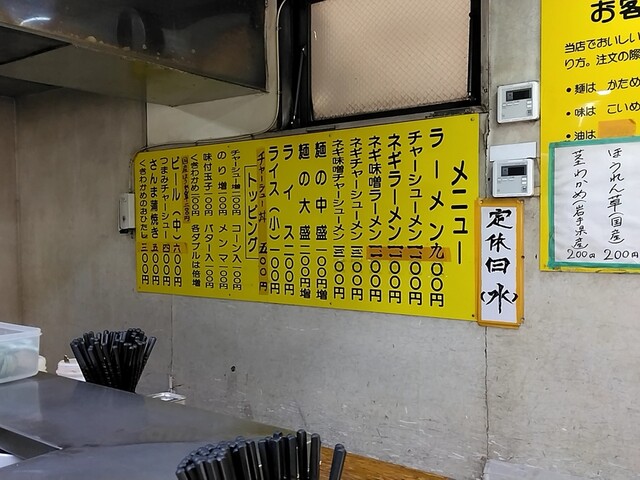 メニュー
ラーメン 九〇〇円
チャーシューメン
ネギラーメン
ネギ味噌ラーメン
ネギチャーシューメン
ネギ味噌チャーシューメン
麺の中盛 一〇〇円増
麺の大盛 二〇〇円増
ライス 二〇〇円
ライス(小)
チャーシュー丼 五〇〇円
トッピング
チャーシュー増
のり増
味付玉子 一〇〇円
くきわかめ
コーン入 一〇〇円
メンマ
バター入
各ダブルは倍増
ビール(中) 六〇〇円
つまみチャーシュー 四〇〇円
さんま蒲焼き 五〇〇円
くきわかめのおひたし 三〇〇円
定休日(水)
お客
当店でおいしい
り方。注文の際
・麺は かため
・味は こいめ
・油は
ほうれん草(国産) 200円
茎わかめ(岩手県産) 200円